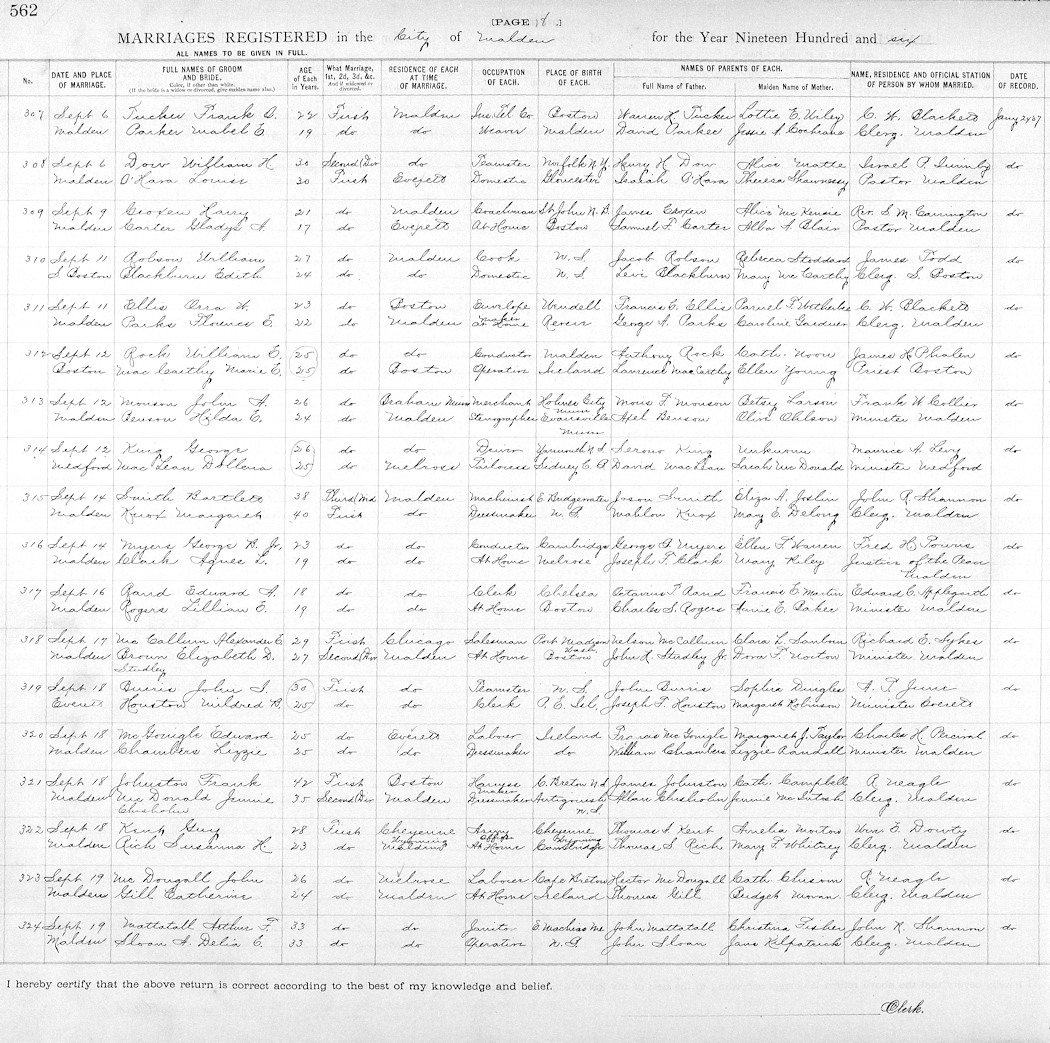 562
[PAGE 18.]
MARRIAGES REGISTERED in the City of Malden for the Year Nineteen Hundred and six
ALL NAMES TO BE GIVEN IN FULL.
No. DATE AND PLACE OF MARRIAGE. FULL NAMES OF GROOM AND BRIDE. Color, if other than white. (If the bride is a widow or divorced, give maiden name also.) AGE of Each in Years. What Marriage, 1st, 2d, 3d, &c. And if widowed or divorced. RESIDENCE OF EACH AT TIME OF MARRIAGE. OCCUPATION OF EACH. PLACE OF BIRTH OF EACH. NAMES OF PARENTS OF EACH. Full Name of Father. Maiden Name of Mother. NAME, RESIDENCE AND OFFICIAL STATION OF PERSON BY WHOM MARRIED. DATE OF RECORD.
307 Sept 6 Tucker Frank 22 First Malden Tel Co. Boston Warren L. Tucker Lottie E. Wiley C. W. Blackett
Malden Parker Mabel E. 19 do do Weaver Malden David Parker Jessie A Cochrane Clerg. Malden
308 Sept 6 Dow William H. 30 Second (Div do Teamster Norfolk N.Y. Henry H. Dow Alice Israel P. Quimby do
Malden O'Hara Louise 30 First Everett Domestic Gloucester Isaiah O'Hara Theresa Shawnessy Pastor Malden
309 Sept 9 Croxen Harry 21 do Malden Coachman St. John N.B. James Croxen Alice McKensie Rev. S. M. Carrington do
Malden Carter Gladys A. 17 do Everett At Home Boston Samuel F. Carter Alba A Blair Pastor Malden
310 Sept 11 Robson William 27 do Malden Cook N.S. Jacob Robson Rebecca Stoddard James Todd do
S. Boston Blackburn Edith 24 do do Domestic N.S. Levi Blackburn Mary McCarthy Clerg. S. Boston
311 Sept 11 Ellis Ora W. 23 do Boston Envelope maker Wendell Francis E. Ellis C. W. Blackett do
Malden Parks Florence E. 22 do Malden At Home Revere George A. Parks Caroline Gardner Clerg. Malden
312 Sept 12 Rock William E. 25 do do Conductor Malden Anthony Rock Cath. Noon James H. Phalen do
Boston MacCarthy Marie E. 25 do Boston Operative Ireland Laurence MacCarthy Ellen Young Priest Boston
313 Sept 12 Monson John A. 26 do Braham Minn Merchant Holmes City Minn Mons P. Monson Betsy Larson Frank W Collier do
Malden Benson Hilda E. 24 do Malden Stenographer Evansville Minn Axel Benson Olive Ohlson Minister Malden
314 Sept 12 King George 26 do do Driver Yarmouth N.S. King Unknown Maurice A. Levy do
Medford MacLean Dollena 25 do Melrose Tailoress Sidney C.B. David MacLean Sarah MacDonald Minister Medford
315 Sept 14 Smith Bartlett 38 Third (Wd Malden Machinist E. Bridgewater Jason Smith Eliza A. Joslin John R. Shannon do
Malden Knox Margaret 40 First do Dressmaker N.S. Mahlon Knox May E. Delong Clerg. Malden
316 Sept 14 Myers George B. Jr. 23 do do Conductor Cambridge George A Myers Ellen F. Warren Fred H. do
Malden Clark Agnes L. 19 do do At Home Melrose Joseph F. Clark Mary Riley Justice of the Peace Malden
317 Sept 16 Rand Edward A. 18 do do Clerk Chelsea Octavius T Rand Frances E. Martin Edward C. Applegarth do
Malden Rogers Lillian E. 19 do do At Home Boston Charles S. Rogers Annie E. Baker Minister Malden
318 Sept 17 McCallum Alexander E. 29 First Chicago Salesman Port Madison Wash Nelson McCallum Clara L. Sanborn Richard E. Sykes do
Malden Brown Elizabeth D. 27 Second (Div Malden At Home Boston John H. Studley Jr. Dora F. Norton Minister Malden
Studley
319 Sept 18 Burris John S. 30 First do Teamster N.S. John Burris Sophia Dingle do
Everett Houston Mildred B. 25 do do Clerk P.E. Isl. Joseph F. Houston Margaret Robinson Minister Everett
320 Sept 18 McGonigle Edward 25 do Everett Laborer Ireland Francis McGonigle Margaret J. Taylor Charles H. Percival do
Malden Chambers Lizzie 25 do do Dressmaker do William Chambers Lizzie Randall Minister Malden
321 Sept 18 Johnston Frank 42 First Boston Harness Maker C. Breton N.S. James Johnston Cath. Campbell R Neagle do
Malden McDonald Jennie 35 Second (Div Malden Dressmaker Antigonish N.S. Allan Chisholm Jennie McIntosh Clerg. Malden
Chisholm
322 Sept 18 Kent Guy 28 First Cheyenne Wyoming Army Officer Cheyenne Wyoming Thomas A Kent Amelia Morton Wm. E. Dowty do
Malden Rich Susanna H. 23 do Malden At Home Cambridge Thomas S. Rich Mary F. Whitney Clerg. Malden
323 Sept 19 McDougall John 26 do Melrose Laborer Cape Breton Hector McDougall Cath. Chisom R. Neagle do
Malden Gill Catherine 24 do Malden At Home Ireland Thomas Gill Bridget Moran Clerg. Malden
324 Sept 19 Mattatall Arthur F. 33 do do Janitor E. Machias Me. John Mattatall Christina Fisher John R. Shannon do
Malden Sloan A. Delia E. 33 do do Operative N.S. John Sloan Jane Kilpatrick Clerg. Malden
I hereby certify that the above return is correct according to the best of my knowledge and belief.
Clerk.